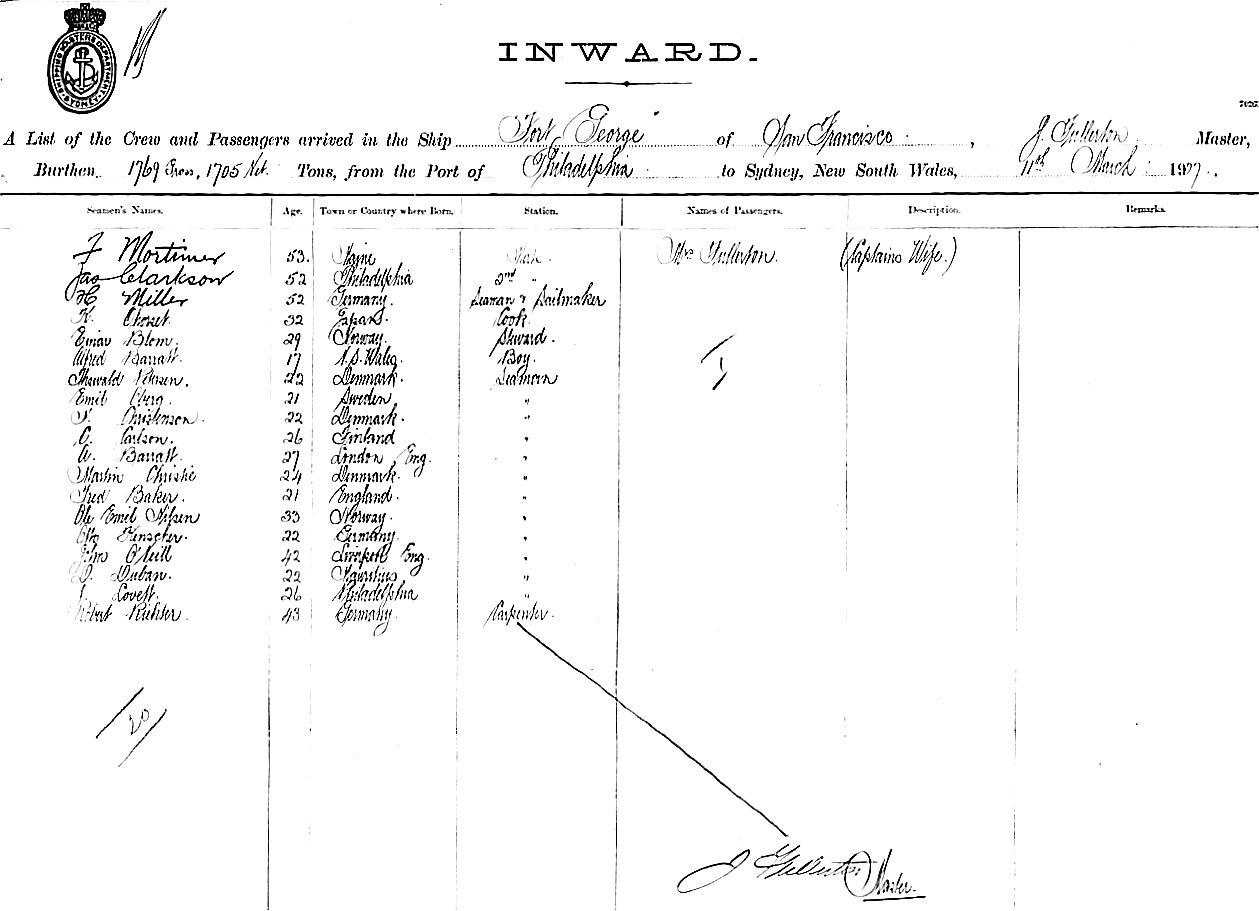 SHIPPING MASTERS DEPARTMENT SYDNEY
INWARD.
A List of the Crew and Passengers arrived in the Ship "Fort George" of San Francisco, J. Fullerton Master,
Burthen 1769 Gross, 1705 Net. Tons, from the Port of Philadelphia to Sydney, New South Wales, 11th March 1907.
Seamen's Names. Age. Town or Country where Born. Station. Names of Passengers. Description. Remarks.
F Mortimer 53. Maine Mate. Mrs Fullerton. (Captains Wife.)
Jas Clarkson 52 Philadelphia 2nd "
H Miller 52 Germany. Seaman & Sailmaker
K. 32 Japan. Cook.
Einar Blom. 29 Norway. Steward.
Alfred Barratt. 17 N.S. Wales. Boy. 1
22 Denmark. Seaman
Emil Oberg. 21 Sweden "
Christenson. 22 Denmark. "
C. Carlson. 26 Finland "
A. Barratt. 27 London Eng. "
Martin Christie 24 Denmark. "
Fred Baker. 21 England. "
Ole Emil Nilsen 33 Norway. "
Otto 22 Germany. "
John O'Neill 42 Liverpool Eng. "
D. Duban. 22 Mauritius "
Lovett. 26 Philadelphia "
Robert Richter. 43 Germany. Carpenter.
20
J Fullerton Master.